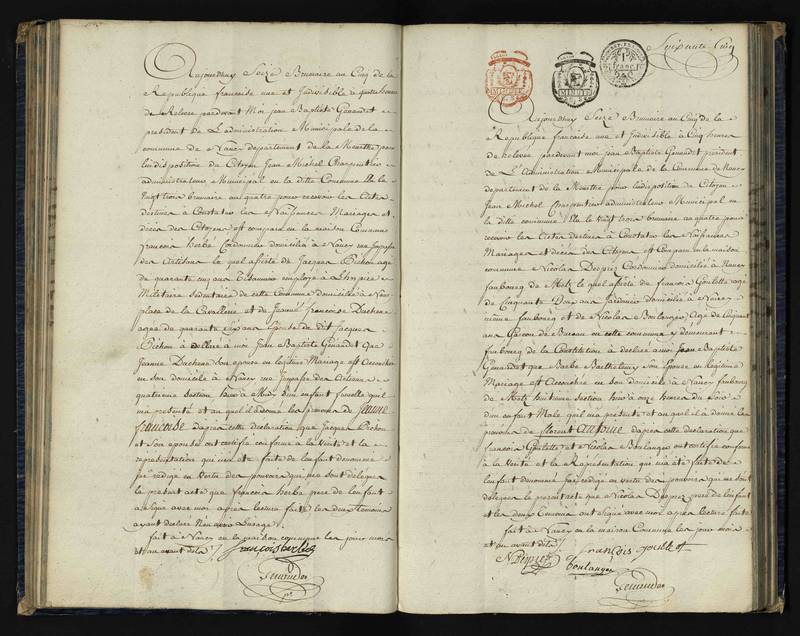 Aujourdhuy Seize Brumaire an Cinq de la
République française une et Indivisible à quatre heures
de Relevée pardevant Moi jean Baptiste Genaudet
president de L'administration Municipale de la
commune de Nancy departement de la Meurthe pour
lindisposition du Citoyen Jean Michel
administrateur Municipal en la ditte Commune Elu le
Vingt trois brumaire an quatre pour recevoir les Actes
destinés à Constater les Naissances Mariages et
décès des Citoyens est comparu en la maison Commune
francois herbe Cordonnier domicilié à Nancy rue
des Artisans le quel assisté de Jacques Pichon agé
de quarante cinq ans employé à L'hospice
Militaire sedentaire de cette Commune domicilié à Nancy
place de la Cavallerie et de Jeanne francoise Duchene
agée de quarante cinq ans Epouse de dit Jacques
Pichon à déclaré à moi Jean Baptiste Genaudet Que
Jeanne Duchene Son epouse en legitime Mariage est Accouchée
en son domicile à Nancy rue des Artisans
quatrieme Section hier à Midy d'un enfant femelle quil
ma presenté et au quel il à donné les prenoms de jeanne
francoise d'apres cette déclaration que Jacques Pichon
et Son epouse ont certifié conforme à la Vérité et la
représentation qui m'a été faite de l'enfant denommé
j'ai redigé en vertu des pouvoirs qui me sont délégués
le présent acte que françois herbe pere de l'enfant
à Signé avec moi apres lecture faite les deux Temoins
ayant declaré N'en avoir L'usage
fait à Nancy en la maison commune les jour mois
et an avant dits
francois herbe
Genaudet
Soixante Cinq
MINUTE
MINUTE
Aujourdhuy Seize Brumaire an Cinq de la
République française une et Indivisible à Cinq heures
de relevée pardevant moi jean Baptiste Genaudet president
de L'administration Municipale de la Commune de Nancy
departement de la Meurthe pour lindisposition du Citoyen
Jean Michel administrateur Municipal en
la ditte commune Elu le Vingt trois brumaire an quatre pour
recevoir les Actes destinés à Constater les Naissances
Mariages et décès des Citoyens est Comparu en la maison
commune Nicolas Despriez Cordonnier domicilié à Nancy
faubourg de Metz le quel assisté de francois Goulette agé
de Cinquante Deux ans Jardinier domicilié à Nancy
même faubourg et de Nicolas Boulanger Agé de Cinquante
ans Garcon de Bureau en cette commune y demeurant
faubourg de la Constitution à déclaré à moi Jean Baptiste
Genaudet que Barbe Barthelemy Son Epouse en Legitime
Mariage est Accouchée en son domicile à Nancy faubourg
de Metz huitieme Section hier à onze heures du Soir
d'un enfant Male quil m'a présenté et au quel il à donné les
prenoms de florent antoine d'apres cette déclaration que
francois Goulette et Nicolas Boulanger ont certifié conforme
à la Vérité et la Représentation qui m'a été faite de
l'enfant denommé j'ai redigé en vertu des pouvoirs qui me sont
délégués le present acte que Nicolas Despriez pere de l'enfant
et les deux Temoins ont signé avec moi après lecture faite
fait à Nancy en la maison Commune les jour mois
et an avant dits
N Despriez
francois goulette
boulanger
Genaudet